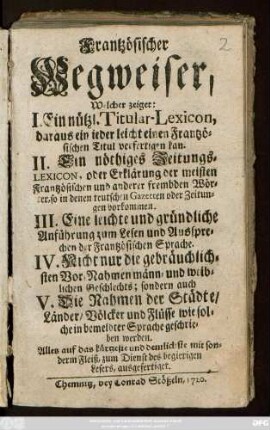 2
Frantzösischer
Wegweiser,
Welcher zeiget:
I. Ein nützl. Titular-Lexicon,
daraus ein ieder leicht einen Frantzö-
sischen Titul verfertigen kan.
II. Ein nöthiges Zeitungs-
LEXICON, oder Erklärung der meisten
Frantzösischen und anderer frembden Wör-
ter, so in denen teutschen Gazetten oder Zeitun-
gen vorkommen.
III. Eine leichte und gründliche
Anführung zum Lesen und Ausspre-
chen der Frantzösischen Sprache.
IV. Nicht nur die gebräuchlich-
sten Vor-Nahmen männ- und weib-
lichen Geschlechts; sondern auch
V. Die Nahmen der Städte/
Länder/ Völcker und Flüsse wie sol-
che in bemeldter Sprache geschrie-
ben werden.
Alles auf das kürtzeste und deutlichste mit son-
derm Fleiß, zum Dienst des begierigen
Lesers, ausgefertiget.
Chemnitz, bey Conrad Stößeln, 1720.